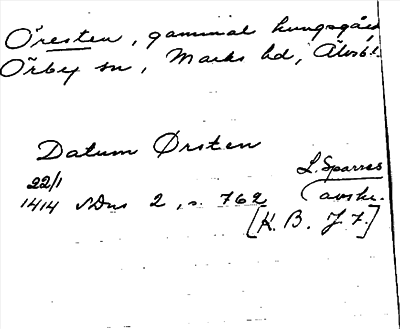 Öresten, gammal kungsgård
Örby sn, Marks hd, Älvsb.l.
Datum Ørsten
22/1 L. Sparres
1414 SDns 2, s. 762 (avskr.
[K. B. J. 7.]